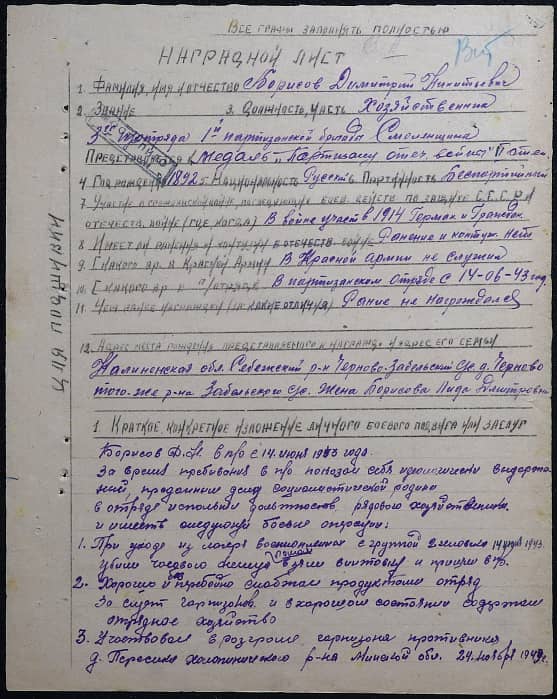 Все графы заполнять полностью
Наградной лист
1. Фамилия, имя и отчество Борисов Димитрий Никитьевич
2. Звание 3. Должность, часть Хозяйственник
3го отряда 1й партизанской бригады Смоленщина
Представляется к медаль "Партизану отеч. войны" II степ.
4. Год рождения 1892 г. Национальность Русский Партийность Беспартийный
7. Участие в гражданской войне, последующих боев. действ. по защите С.С.С.Р. и
отечеств. войне (где, когда) В войне участв 1914 Герман и Граждан.
8. Имеет ли ранения и контузии в отечеств. войне Ранение и контуж. нет
9. С какого вр. в Красной Армии В Красной армии не служил
10. С какого вр. в п/отряде В партизанском отряде с 14-06-43 год.
11. Чем ранее награжден (за какие отличия) Ранее не награждался
12. Адрес места рождения представляемого к награжд. и адрес его семьи
Калининская обл. Себежский р-н Черново-Забельский с/с. д. Черново
того-же р-на Забельского с/с. Жена Борисова Лида Дмитровн
Для подшивки
1. Краткое, конкретное изложение личного боевого подвига или заслуг
Борисов Д.Н. в п/о с 14. июня 1943 года.
За время пребивания в п/о показал себя идеологически выдержа-
ний, преданним делу социалистической родини
в отряде исполнял должность рядового хозяйственника
и имеет следующий боевые операции:
1. При уходе из лагеря военнопленнех с группой 2 человека 14 июня 1943.
убили часового взяли винтовку и пришли в п/о.
2. Хорошо и без перебойно снабжал продуктами отряд
За счет гарнизонов. и в хорошем состоянии содержал
отрядное хозяйство
3. Участвовал в розгроме гарнизона противника
д. Пересика Холопинического р-на Минской обл. 24. ноября 1943г.